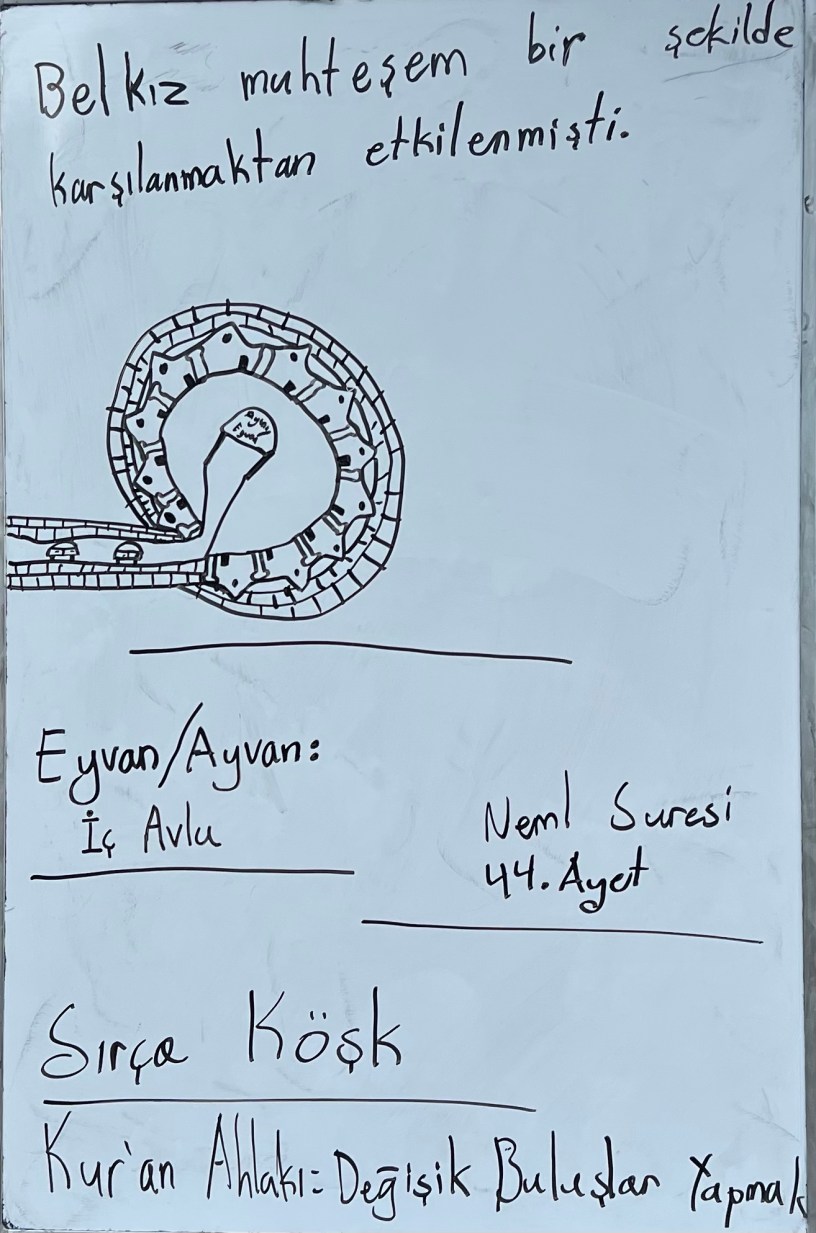 Belkız muhteşem bir şekilde
karşılanmaktan etkilenmişti.
Ayvan
Eyvan
Eyvan/Ayvan:
İç Avlu
Neml Suresi
44. Ayet
Sırça Köşk
Kur'an Ahlakı: Değişik Buluşlar Yapmak